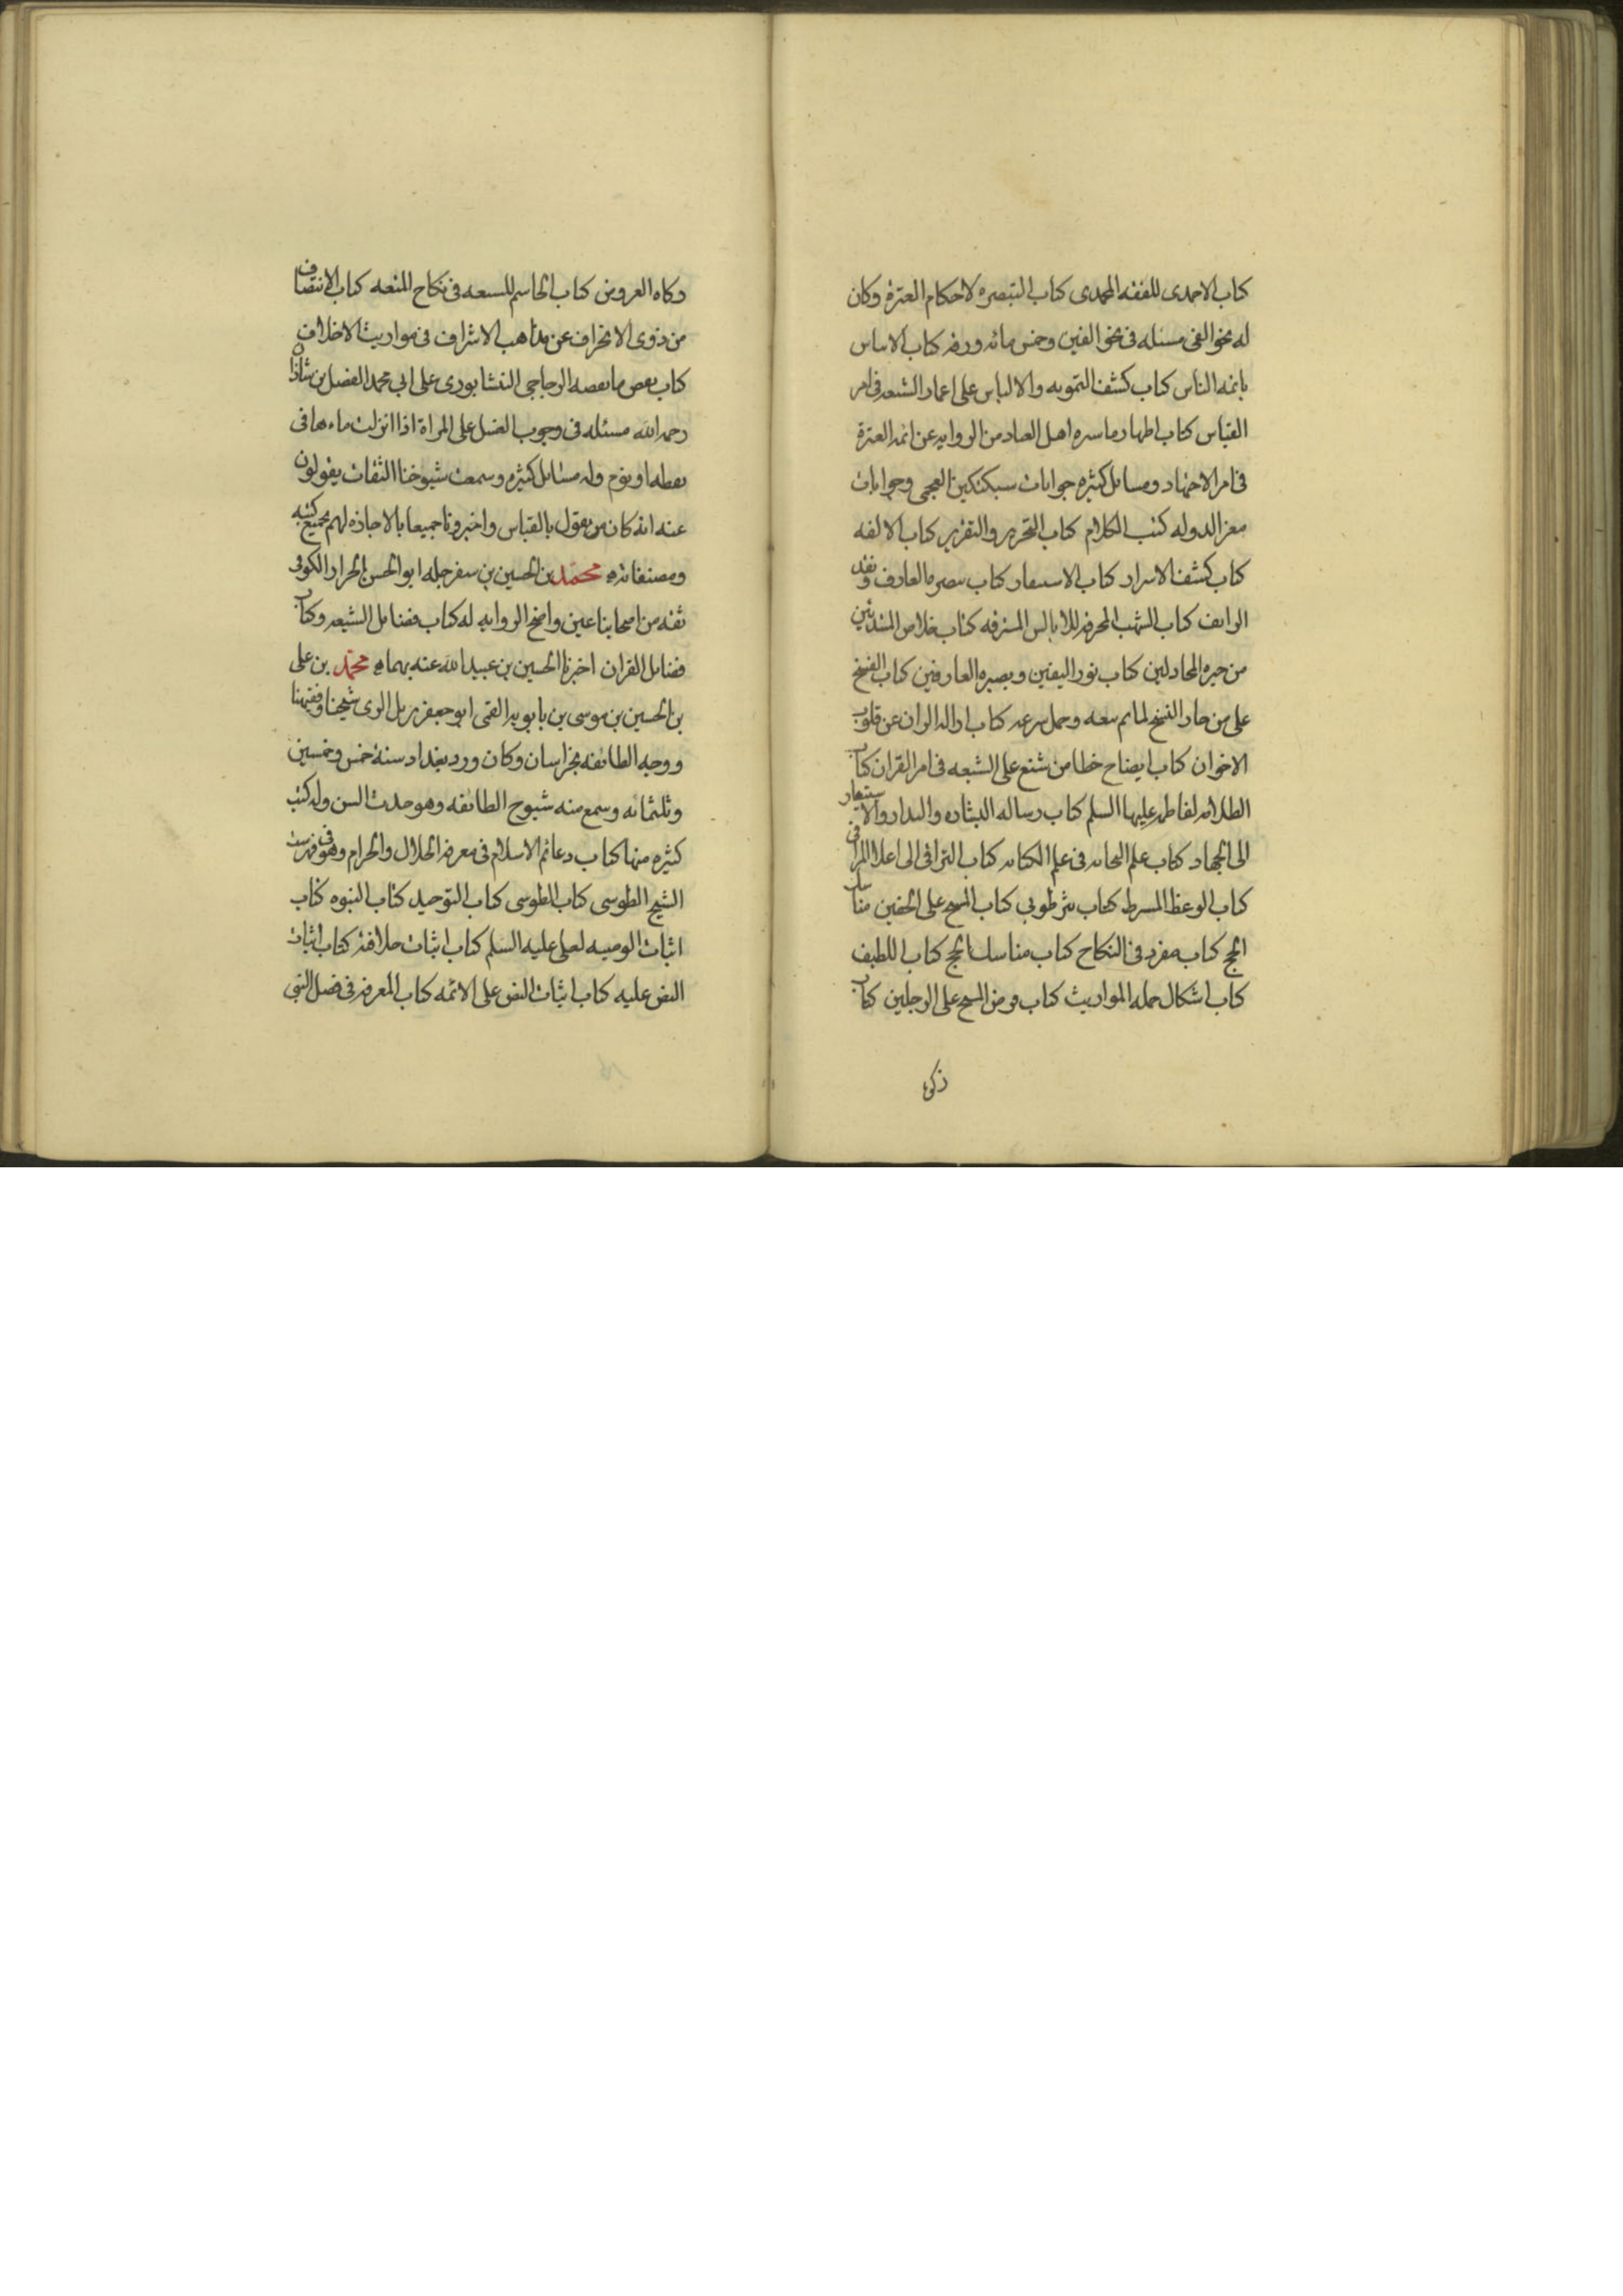 كتاب الاحمدى للفقه المحمدى كتاب التبصره لاحكام العترة وكان
له نحو الفى مسئله فى نحو الفين وخمس مائه ورقه كتاب الاساس
بائمه الناس كتاب كشف التمويه والالباس على اعمار الشيعه فى امر
القياس كتاب اظهار ماستره اهل العناد من الروايه عن ائمه العترة
فى امر الاجتهاد ومسايل كثيره جوابات سبكتكين العجمى وجوابات
معز الدوله كتب الكلام كتاب التحرير والتقرير كتاب الالفه
كتاب كشف الاسرار كتاب الاستنفار كتاب تبصره العارف ونقد
الزايف كتاب الشهب المحرقه للابالس المسترقه كتاب خلاص المبتدئين
من حيره المجادلين كتاب نور اليقين وبصيره العارفين كتاب الفسخ
على من جاز النسخ لما تم شرعه كتاب ازاله الران عن قلوب
الاخوان كتاب ايضاح خطا من شنع على الشيعه فى امر القران كتاب
الظلامه لفاطمه عليها السلم كتاب رساله البشاره والنذاره والاستنفار
الى الجهاد كتاب علم النجابه فى علم الكتابه كتاب التراقى الى اعلا المراقى
كتاب الوعظ المشترط كتاب نثر طوبى كتاب المسح على الخفين مناسك
الحج كتاب مفرد فى النكاح كتاب مناسك الحج كتاب اللطيف
كتاب اشكال جمله المواريث كتاب فرض المسح على الرجلين كتاب
زكوة
وكاه العروض كتاب الحاسم للشنعه فى نكاح المتعه كتاب الانتصاف
من ذوى الانحراف عن مذاهب الاشراف فى مواريث الاخلاف
كتاب بعض ما نقضه الزجاجى النيشابورى على ابى محمد الفضل بن شاذان
رحمه الله مسئله فى وجوب الغسل على المراة اذا انزلت ماءها فى
يقظه او نوم وله مسائل كثيره وسمعت شيوخنا الثقات يقولون
عنه انه كان يقول بالقياس واخبرونا جميعا بالاجازه لهم بجميع كتبه
ومصنفاته محمد بن الحسين بن سفرجله ابو الحسن الخزاز الكوفى
ثقه من اصحابنا عين واضح الروايه له كتاب فضايل الشيعه وكتاب
فضايل القران اخبرنا الحسين بن عبيد الله عنه بهما محمد بن على
بن الحسين بن موسى بن بابويه القمى ابو جعفر نزيل الرى شيخنا وفقيهنا
ووجه الطائفه بخراسان وكان ورد بغداد سنة خمس وخمسين
وثلثمائه وسمع منه شيوخ الطائفه وهو حدث السن وله كتب
كثيره منها كتاب دعائم الاسلام فى معرفه الحلال والحرام وهو فى فهرست
الشيخ الطوسى كتاب الطوسى كتاب التوحيد كتاب النبوه كتاب
اثبات الوصيه لعلى عليه السلم كتاب اثبات خلافته كتاب اثبات
النص عليه كتاب اثبات النص على الائمه كتاب المعرفه فى فضل النبى